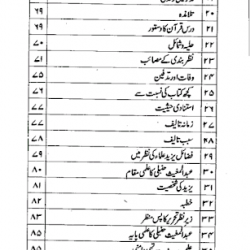 ۲۰ تلامذہ ۶۹
۲۱ درس قرآن کا دستور ۶۹
۲۲ حلیہ و شمائل ۷۰
۲۳ نظر بندی کے مصائب ۷۱
۲۴ وفات اور تدفین ۷۵
۲۵ کچھ کتاب کی نسبت سے ۷۶
۲۶ استنادی حیثیت ۷۷
۲۷ زمانہ تالیف ۷۷
۲۸ سبب تالیف ۷۸
۲۹ فضائل یزید علماء کی نظر میں ۷۹
۳۰ عبدالمغیث حنبلی کا علمی مقام ۸۰
۳۱ یزید کی شخصیت ۸۱
۳۲ خطبہ ۸۲
۳۳ زیر نظر تحریر کا پس منظر ۸۳
۳۴ عبدالمغیث حنبلی کا علمی پایہ ۸۵